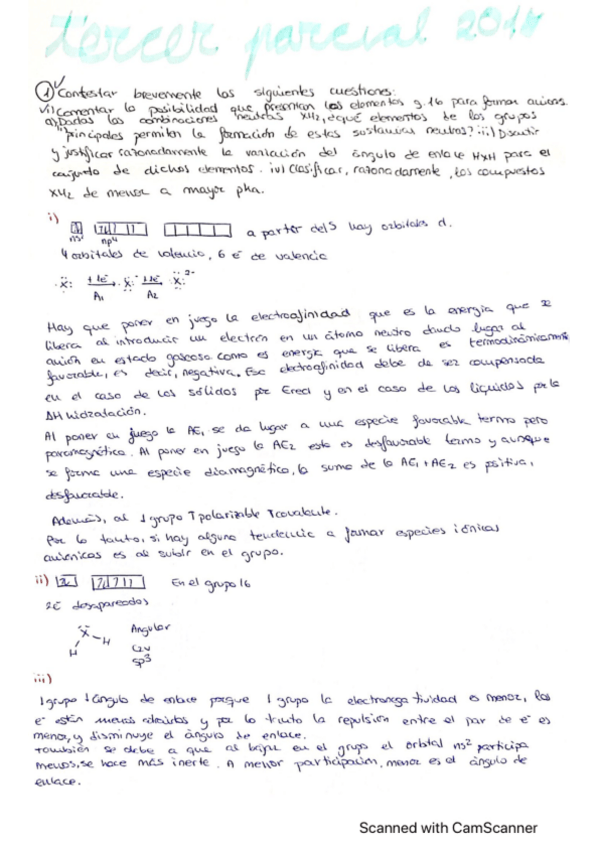 tercer parcial 201
① Contestar brevemente las siguientes cuestiones:
i) Comentar la posibilidad que presentan los elementos g.16 para formar aniones.
Dadas las combinaciones neutras XH₂, ¿qué elementos de los grupos
principales permiten la formación de estas sustancias neutras? iii) Discutir
y justificar razonadamente la variación del ángulo de enlace HXH para el
conjunto de dichos elementos. iv) Clasificar, razonadamente, los compuestos
XH₂ de menor a mayor pka.
i)
a partir del S hay orbitales d.
ns² np⁴
4 orbitales de valencia, 6 e⁻ de valencia
·Ẍ: +1e⁻ → A₁ ·Ẍ:⁻ +1e⁻ → A₂ :Ẍ:²⁻
Hay que poner en juego la electroafinidad que es la energía que se
libera al introducir un electrón en un átomo neutro dando lugar al
anión en estado gaseoso como es energía que se libera es termodinámicamente
favorable, es decir, negativa. Esa electroafinidad debe de ser compensada
en el caso de los sólidos por Ered y en el caso de los líquidos por la
ΔH hidratación.
Al poner en juego la AE₁ se da lugar a una especie favorable termo pero
paramagnética. Al poner en juego la AE₂ esta es desfavorable termo y aunque
se forma una especie diamagnética, la suma de la AE₁ + AE₂ es positiva,
desfavorable.
Además, al ↓grupo ↑polarizable ↑covalente.
Por lo tanto, si hay alguna tendencia a formar especies iónicas
aniónicas es al subir en el grupo.
ii) En el grupo 16
2e⁻ desapareados
Ẍ Angular
H H C2v
sp³
iii)
↓grupo ↓ángulo de enlace porque ↓grupo la electronegatividad es menor, los
e⁻ están menos atraídos y por lo tanto la repulsión entre el par de e⁻ es
menor, y disminuye el ángulo de enlace.
También se debe a que al bajar en el grupo el orbital ns² participa
menos, se hace más inerte. A menor participación, menor es el ángulo de
enlace.
Scanned with CamScanner